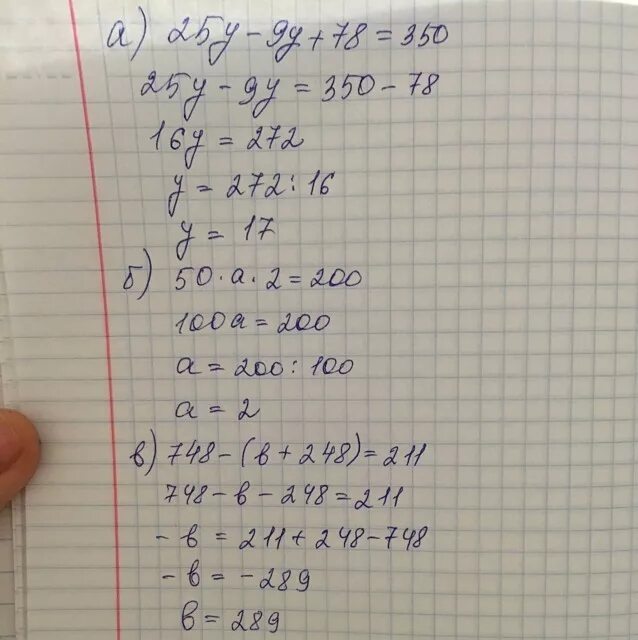 а) 25y - 9y + 78 = 350
25y - 9y = 350 - 78
16y = 272
y = 272 : 16
y = 17
б) 50 · a · 2 = 200
100a = 200
a = 200 : 100
a = 2
в) 748 - (в + 248) = 211
748 - в - 248 = 211
- в = 211 + 248 - 748
- в = - 289
в = 289